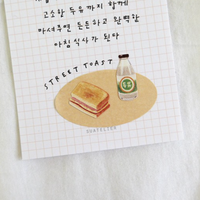 고소한 두유까지 함께
마셔주면 든든하고 완벽한
아침식사가 된다
STREET TOAST